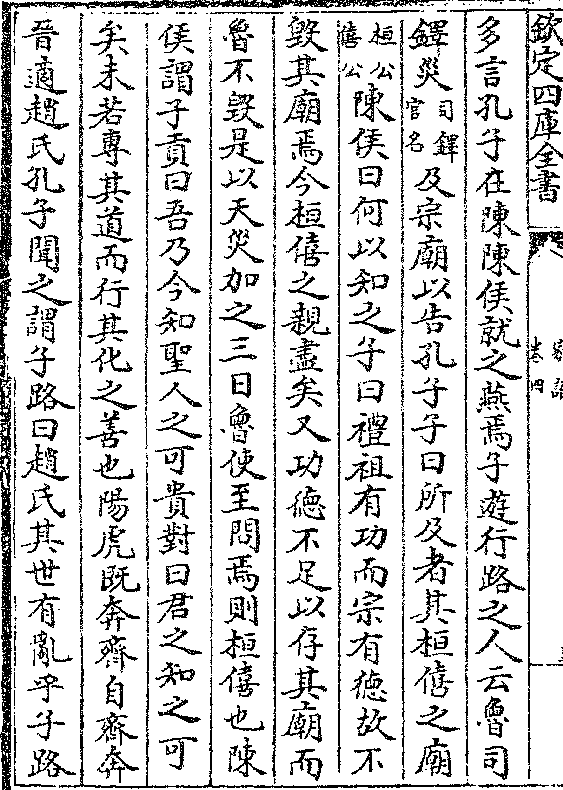 欽定四庫全書
家語
卷四
多言孔子在陳陳侯就之燕焉子遊行路之人云魯司
鐸災司鐸官名及宗廟以告孔子子曰所及者其桓僖之廟
桓公僖公陳侯曰何以知之子曰禮祖有功而宗有德故不
毀其廟焉今桓僖之親盡矣又功德不足以存其廟而
魯不毀是以天災加之三日魯使至問焉則桓僖也陳
侯謂子貢曰吾乃今知聖人之可貴對曰君之知之可
矣未若專其道而行其化之善也陽虎既奔齊自齊奔
晉適趙氏孔子聞之謂子路曰趙氏其世有亂乎子路